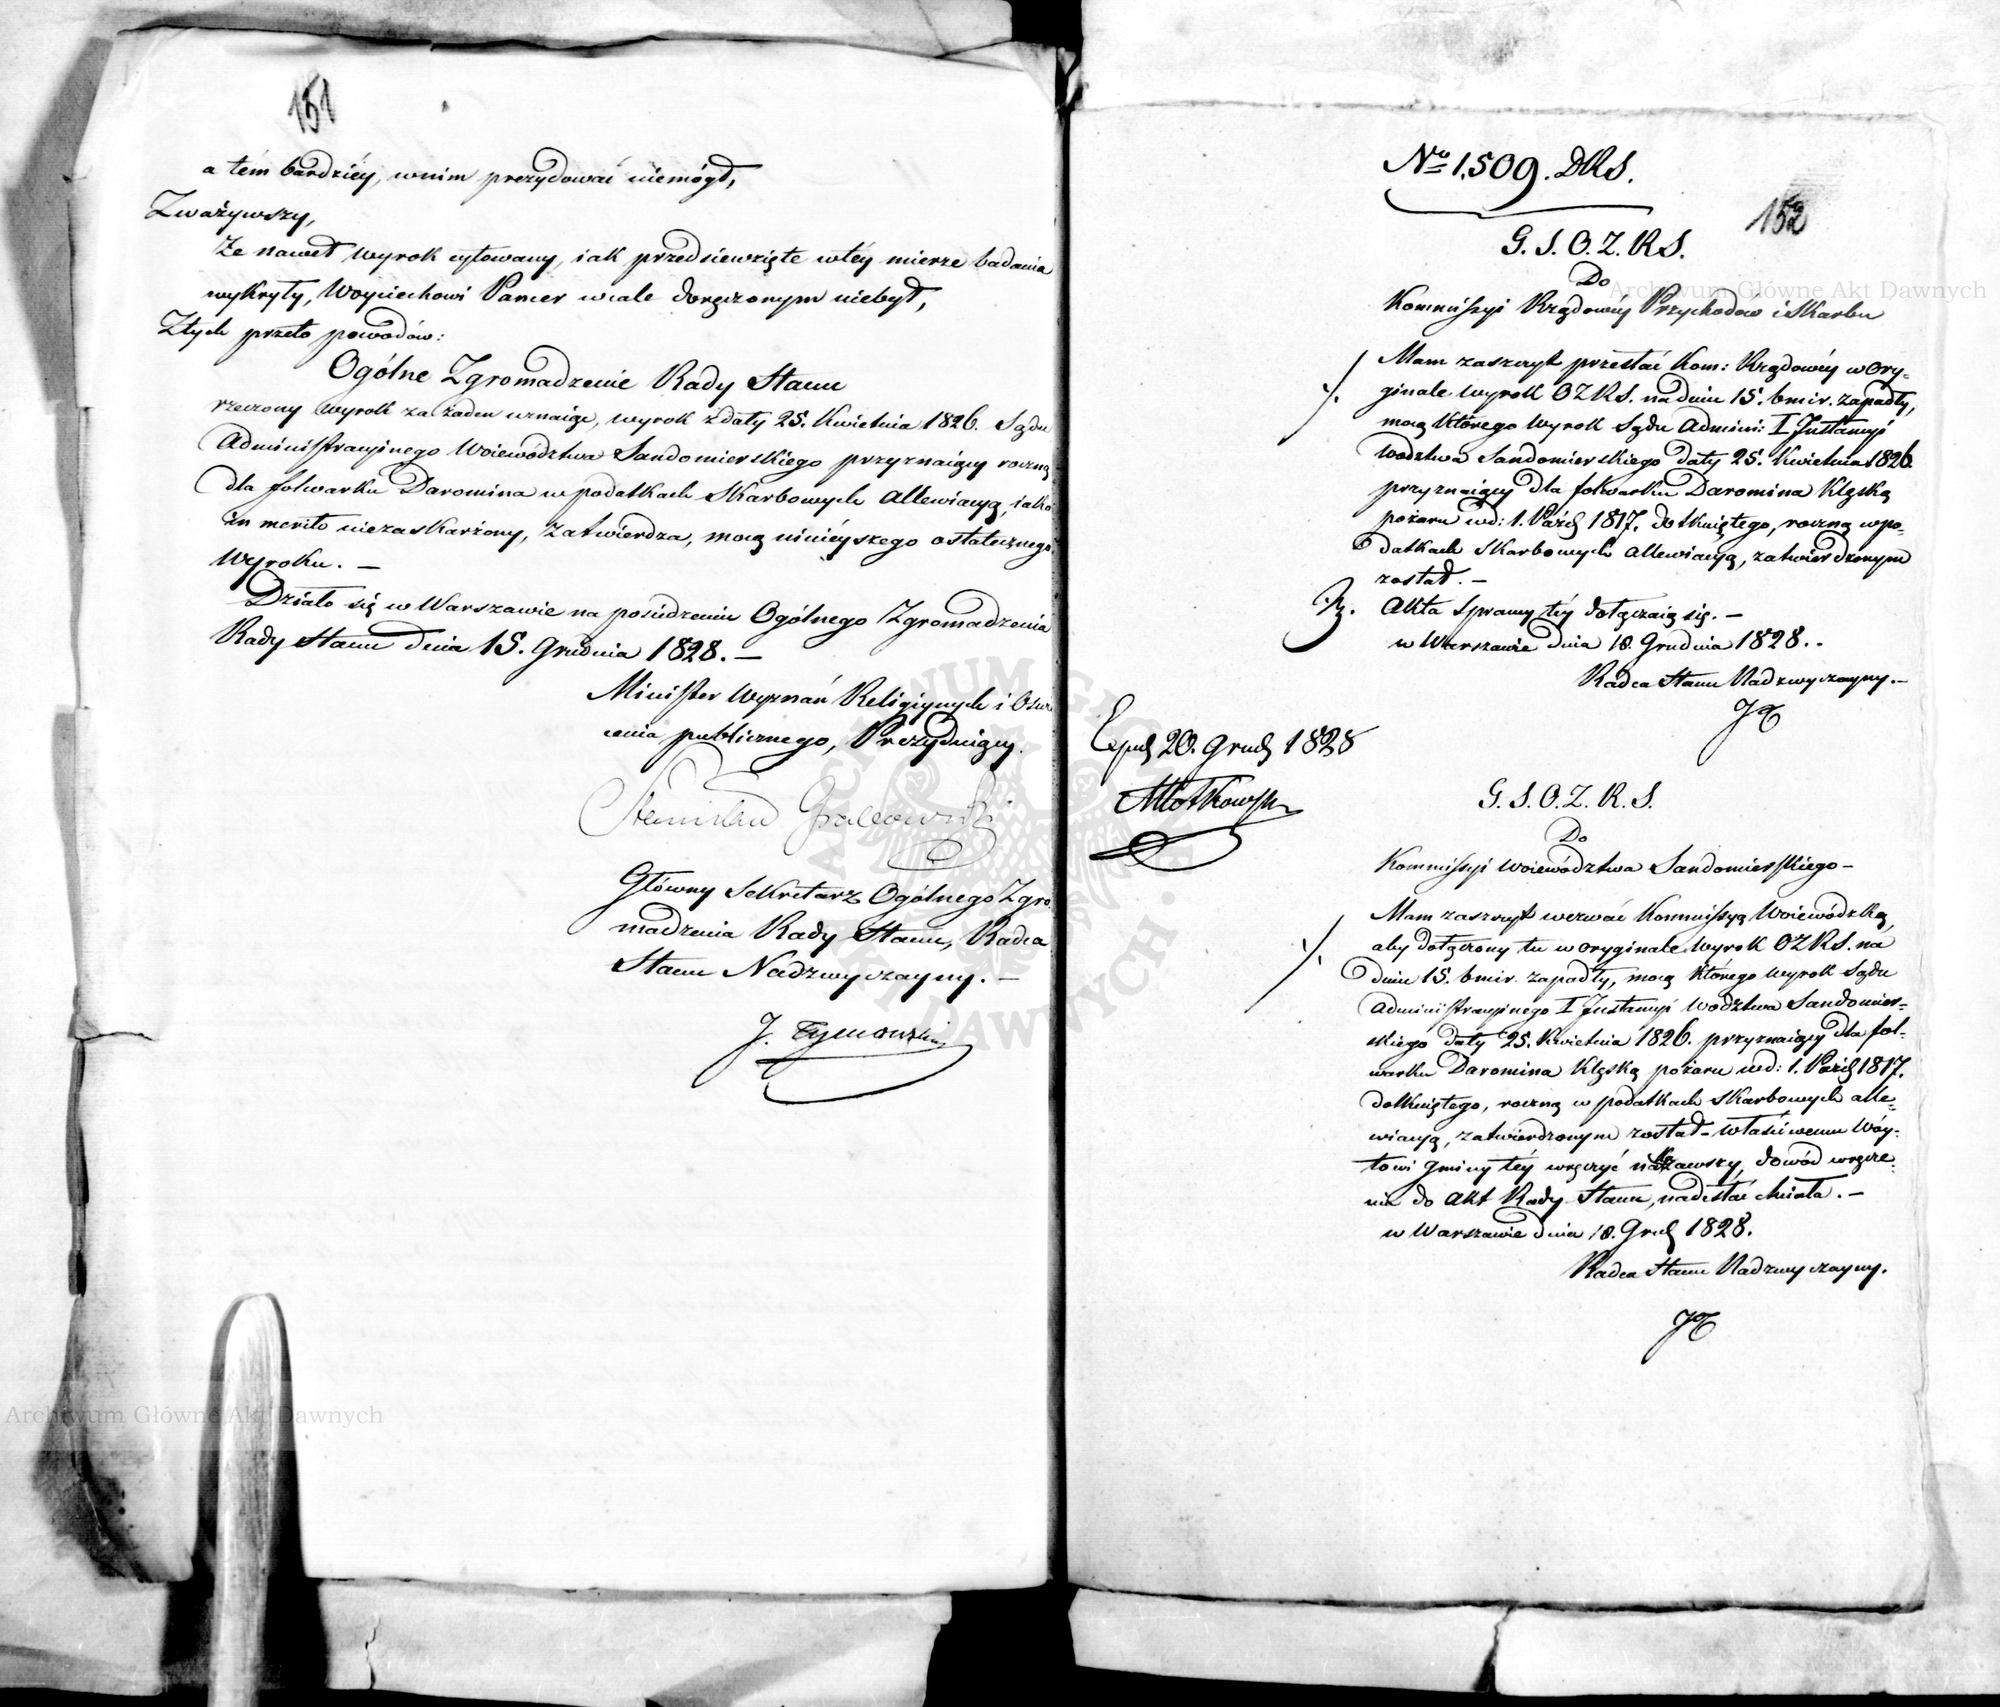 151
a tém bardziéy, w nim prezydować niemógł,
Zważywszy,
że nawet wyrok cytowany, iak przedsiewzięte w téy mierze badania
wykryły, Woyciechowi Pancer wcale doręczonym niebył,
Z tych przeto powodów:
Ogólne Zgromadzenie Rady Stanu
rzeczony wyrok za żaden uznaige, wyrok z daty 25. Kwietnia 1826. Sądu
Administracyjnego Woiewództwa Sandomierskiego przyznaiący roczną
dla folwarku Daromina w podatkach Skarbowych allewiacyą, iako
in merito niezaskarżony, zatwierdza, mocą ninieyszego ostatecznego
Wyroku. —
Działo się w Warszawie na posiedzeniu Ogólnego Zgromadzenia
Rady Stanu dnia 15. Grudnia 1828. —
Minister Wyznań Religiynych i Oświe
cenia publicznego, Prezyduiący.
Stanisław Grabowski
Główny Sekretarz Ogólnego Zgro
madzenia Rady Stanu, Radca
Stanu Nadzwyczayny. —
J. Tymowski
No 1,509. DRS.
152
G. S. O. Z. R S.
Do
Kommissyi Rządowéy Przychodów i Skarbu
Mam zaszczyt przesłać Kom: Rządowéy w Ory-
ginale wyrok OZRS. na dniu 15. bmir. zapadły,
mocą którego wyrok Sądu Admini: I Instancyi
Wodztwa Sandomierskiego daty 25. Kwietnia 1826.
przyznaiący dla folwarku Daromina Klęską
pożaru w d: 1. Paźd 1817. dotkniętego, roczną w po-
datkach Skarbowych allewiacyą, zatwierdzonym
został. —
Akta Sprawy téy dołączaią się. —
w Warszawie dnia 18. Grudnia 1828. -
Radca Stanu Nadzwyczayny. —
JT
Exped 20. Grud 1828
G. S. O. Z. R. S.
Do
Kommissyi Woiewództwa Sandomierskiego —
Mam zaszczyt wezwać Kommissyą Woiewódzką,
aby dołączony tu w oryginale wyrok OZRS. na
dniu 15. bmir. zapadły, mocą którego wyrok Sądu
Administracyjnego I Instancyi Wodztwa Sandomier-
skiego daty 25. Kwietnia 1826. przyznaiący dla fol-
warku Daromina Klęską pożaru w d: 1. Paźd 1817.
dotkniętego, roczną w podatkach Skarbowych alle-
wiacyą, zatwierdzonym został - właściwemu Wóy-
towi Gminy téy wręczyć nakazawszy, dowód wręcze-
nia do Akt Rady Stanu, nadesłać chciała. —
w Warszawie dnia 18. Grud 1828.
Radca Stanu Nadzwyczayny.
JT
Archiwum Główne Akt Dawnych
Archiwum Główne Akt Dawnych
ARCHIWUM GŁÓWNE AKT DAWNYCH